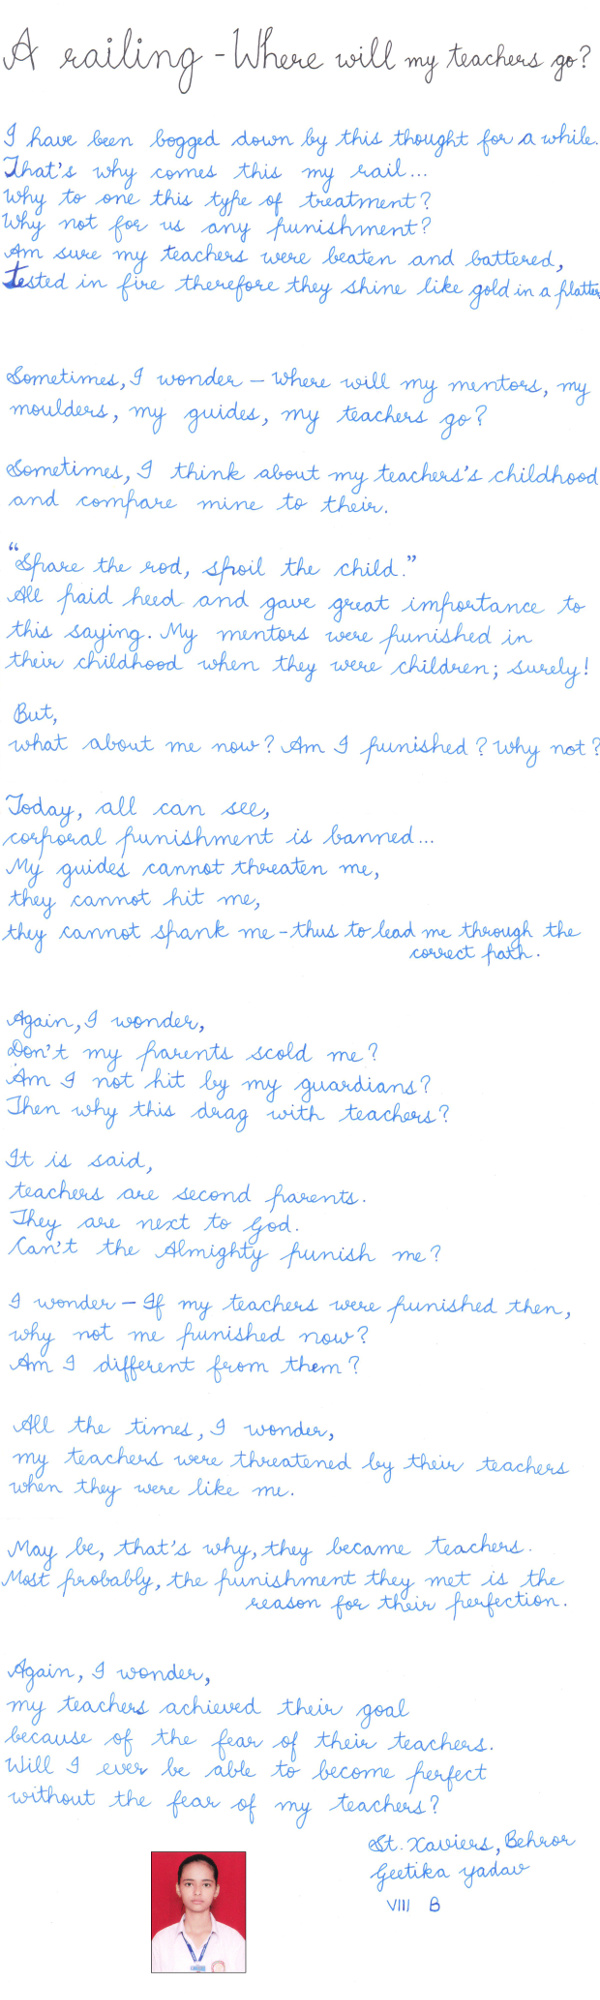 A railing - Where will my teachers go?
I have been bogged down by this thought for a while.
That's why comes this my rail...
Why to one this type of treatment?
Why not for us any punishment?
Am sure my teachers were beaten and battered,
tested in fire therefore they shine like gold in a platter
Sometimes, I wonder - Where will my mentors, my
moulders, my guides, my teachers go?
Sometimes, I think about my teachers's childhood
and compare mine to their.
"Spare the rod, spoil the child."
All paid heed and gave great importance to
this saying. My mentors were punished in
their childhood when they were children; surely!
But,
what about me now? Am I punished? Why not?
Today, all can see,
corporal punishment is banned...
My guides cannot threaten me,
they cannot hit me,
they cannot spank me - thus to lead me through the
correct path.
Again, I wonder,
Don't my parents scold me?
Am I not hit by my guardians?
Then why this drag with teachers?
It is said,
teachers are second parents.
They are next to God.
Can't the Almighty punish me?
I wonder - If my teachers were punished then,
why not me punished now?
Am I different from them?
All the times, I wonder,
my teachers were threatened by their teachers
when they were like me.
May be, that's why, they became teachers.
Most probably, the punishment they met is the
reason for their perfection.
Again, I wonder,
my teachers achieved their goal
because of the fear of their teachers.
Will I ever be able to become perfect
without the fear of my teachers?
St. Xaviers, Behror
Geetika Yadav
VIII B